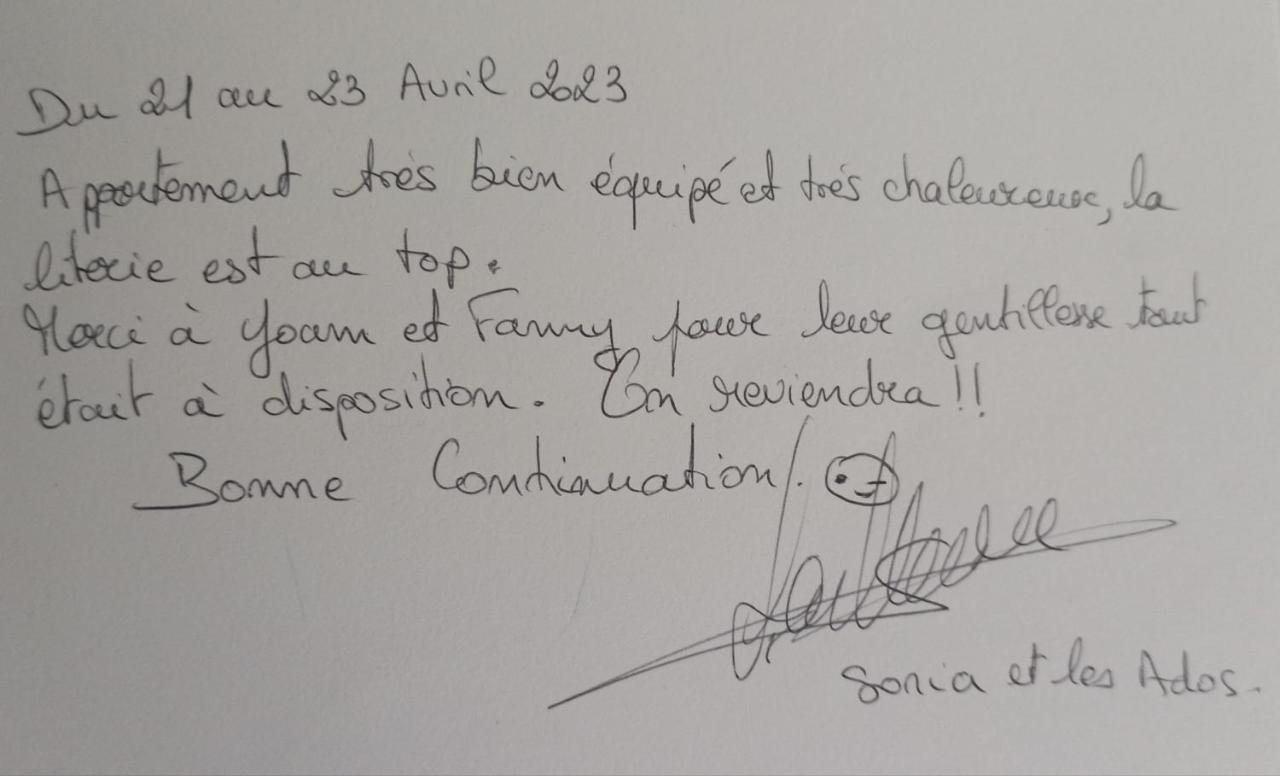 Du 21 au 23 Avril 2023
Appartement très bien équipé et très chaleureux, la
literie est au top.
Merci à Yoam et Fanny pour leur gentillesse tout
était à disposition. On reviendra !!
Bonne Continuation !.
Sonia et les Ados.